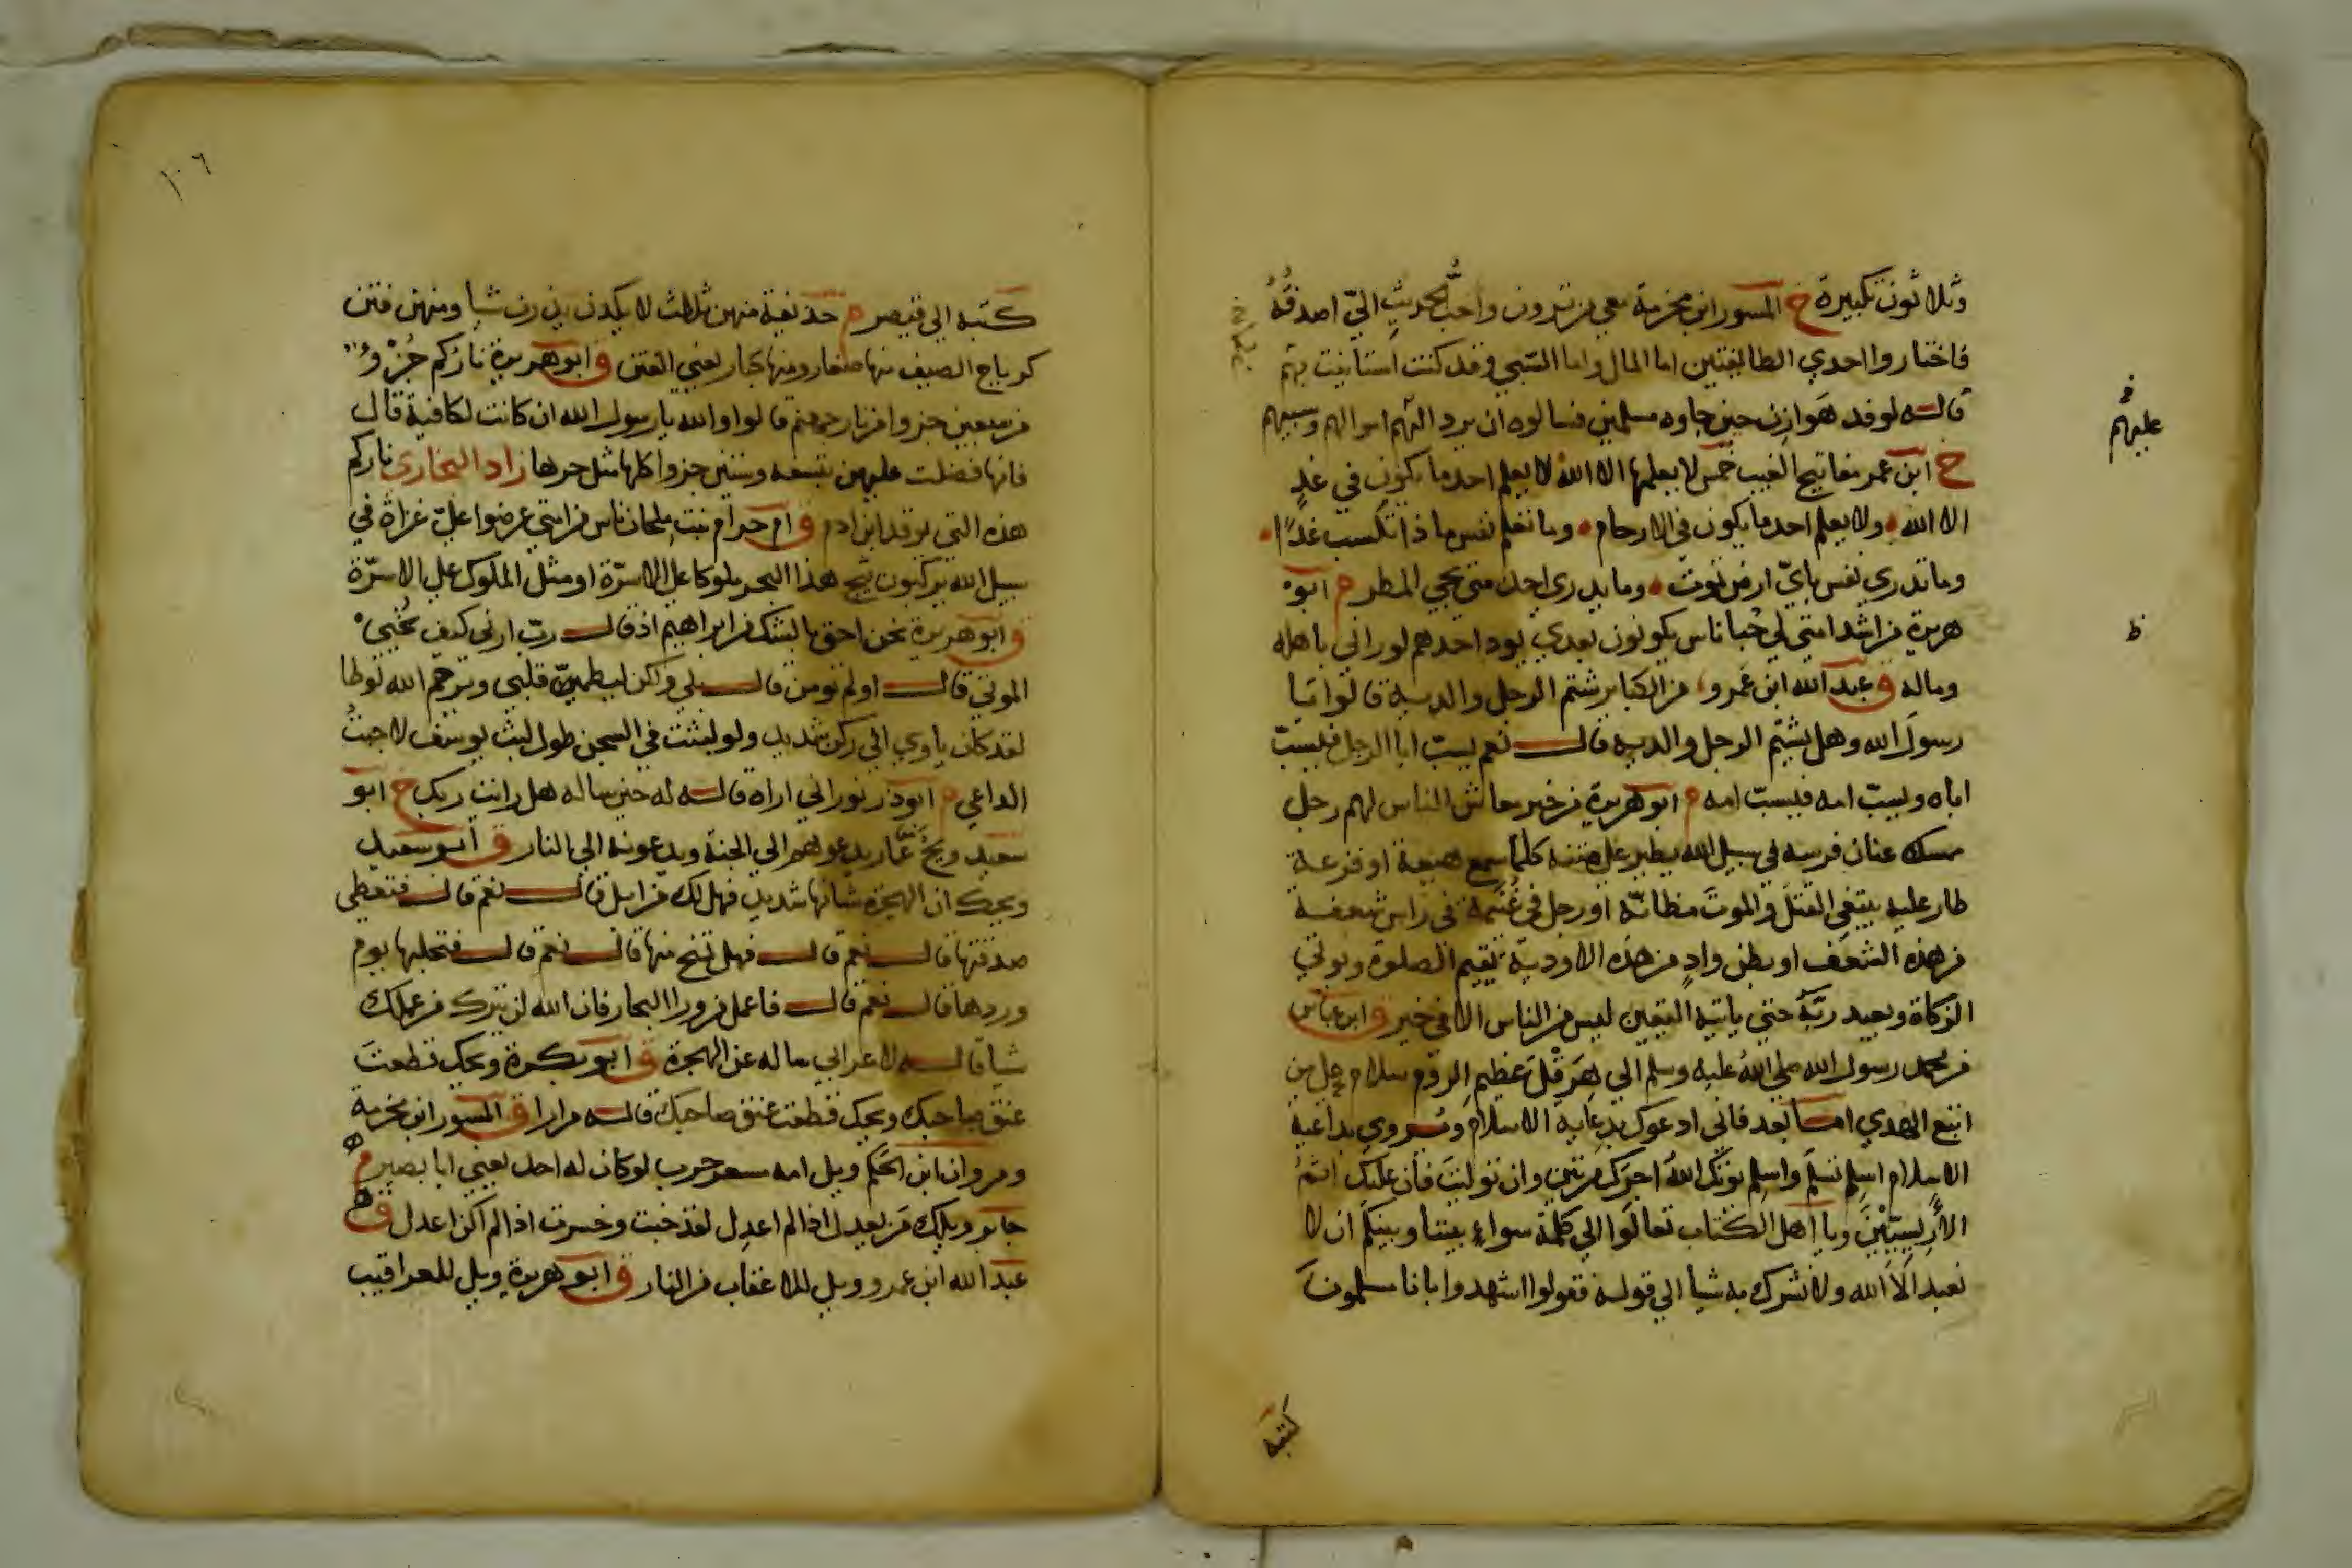 وثلاثون تكبيرة خ المسور ابن مخرمة معي من ترون واحبُّ الحديثِ اليّ اصدقُهُ
فاختاروا احدي الطايفتين اما المال واما السّبي وقد كنت استانيت بهم
قاله لوفد هَوازِن حين جاوه مسلمين فسالوه ان يرد اليهم اموالهم وسبيهم
خ ابن عمر مفاتيح الغيب خمس لا يعلمها الا الله لا يعلم احد ما يكون في غدٍ
الا الله ولا يعلم احد ما يكون في الارحام وما تعلم نفس ماذا تكسب غدًا
وما تدري نفس بايّ ارض تموت وما يدري احد متى يجي المطر م ابو
هريرة من اشد امتي لي حُبا ناس يكونون بعدي يود احدهم لو راني باهله
وماله ق عبد الله ابن عَمرو من الكباير شتم الرجل والديه قالوا يا
رسولَ الله وهل يشتم الرجل والديه قال نعم يسبّ ابا الرجل فيسبّ
اباه ويسبّ امه فيسبّ امه م ابو هريرة من خير معاش الناس لهم رجل
ممسك عنان فرسه في سبيل الله يطير على متنه كلما سمع هيعة او فزعة
طار عليه يبتغي القتلَ والموتَ مظانّه او رجل في غُنَيمة في راس شعفة
من هذه الشَعَف او بطن وادٍ من هذه الاودية يقيم الصلوة ويوتي
الزكاة ويعبد ربَّه حتي ياتيه اليقين ليس من الناس الا في خير ق ابن عباس
من محمد رسول الله صلي الله عليه وسلم الي هِرَقْلَ عظيمِ الروم سلام على من
اتبع الهدي اما بعد فاني ادعوك بدِعاية الاسلام ويُروي بداعية
الاسلام اسلِم تسلَم واسلِم يوتك الله اجرَك مرتين وان توليتَ فان عليك اثمُ
الأَرِيسيِّيْنَ ويا اهل الكتاب تعالوا الي كلمة سواءٍ بيننا وبينكم ان لا
نعبد الا الله ولا نشرك به شيا الي قوله فقولوا اشهدوا بانا مسلمونَ
عليهُم
ط
كتبه
١٠٦
كتبه الي قيصر م حذيفة منهن ثلاث لا يكدن يذرن شيا ومنهن فتن
كرياح الصيف منها صغار ومنها كبار يعني الفتن ق ابو هريرة ناركم جُزْوٌ
من سبعين جزوا من نار جهنم قالوا والله يا رسول الله ان كانت لكافية قال
فانها فضلت عليهن بتسعه وستين جزوا كلها مثل حرها زاد البخاري ناركم
هذه التي يوقد ابن ادم ق ام حرام بنت ملحان ناس من امتي عرضوا عليّ غزاةً في
سبيل الله يركبون ثبج هذا البحر ملوكا على الاسرّة او مثل الملوك على الاسرّة
ق ابو هريرة نحن احق بالشك من ابراهيم اذ قال ربّ ارني كيف تُحيي
الموتي قال اولم تومن قال بلي ولكن ليطمينّ قلبي ويرحم الله لوطا
لقد كان ياوي الي ركن شديد ولو لبثت في السجن طول لبث يوسف لاجبتُ
الداعي م ابو ذر نور اني اراه قاله له حين ساله هل رايت ربك خ ابو
سعيد ويحَ عَمّار يدعوهم الي الجنة ويدعونه الي النار ق ابو سعيد
ويحك ان الهجرة شانها شديد فهل لك من ابل قال نعم قال فتعطي
صدقتها قال نعم قال فهل تمنح منها قال نعم قال فتحلبها يوم
وردها قال نعم قال فاعمل من ورا البحار فان الله لن يترك من عملك
شيا قاله لاعرابي ساله عن الهجرة ق ابو بكرة ويحك قطعتَ
عنق صاحبك ويحك قطعت عنق صاحبك قاله مرارا ق المسور ابن مخرمة
ومروان ابن الحَكم ويل امه مسعر حرب لو كان له احد يعني ابا بصير م
جابر ويلك مَن يعدل اذا لم اعدِل لقد خبت وخسرت اذا لم اكن اعدل ق
عبد الله ابن عمرو ويل للاعقاب من النار ق ابو هريرة ويل للعراقيب